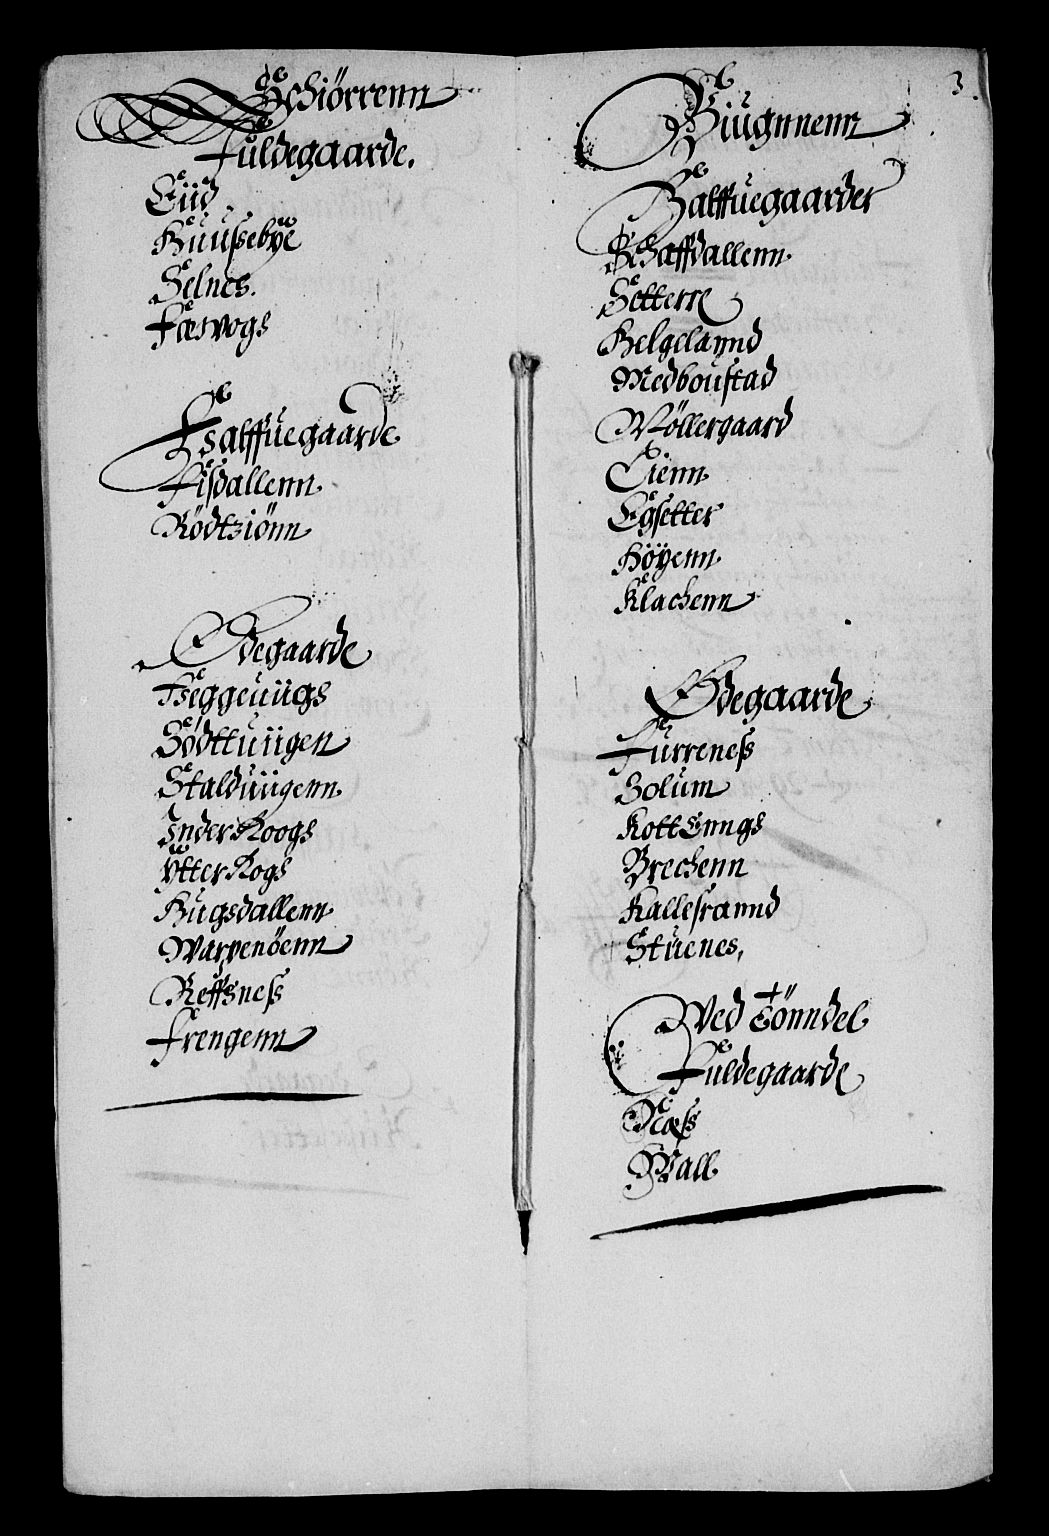 Schiörrenn
Fuldegaarde.
Eiid
Huußebye
Selnes.
Færvogs
Halffuegaarde
Fisdallenn
Rödtziönn
Ödegaarde
Heggeuiigs
Södttuiigen
Stalduiigenn
InderKoogs
YtterKogs
Hugsdallenn
Warpenöenn
Reffsneß
Frengenn
3.
Biugnnenn
Halffuegaarder
Schaffdallenn
Setterre
Helgelannd
Medboustad
Möllergaard
Eienn
Egsetter
Höyenn
Klachenn
Ödegaarde
Furreneß
Solum
Kottengs
Brechenn
Kallesrannd
Stuenes,
Wed Tönndel
Fuldegaarde
Næß
Wall